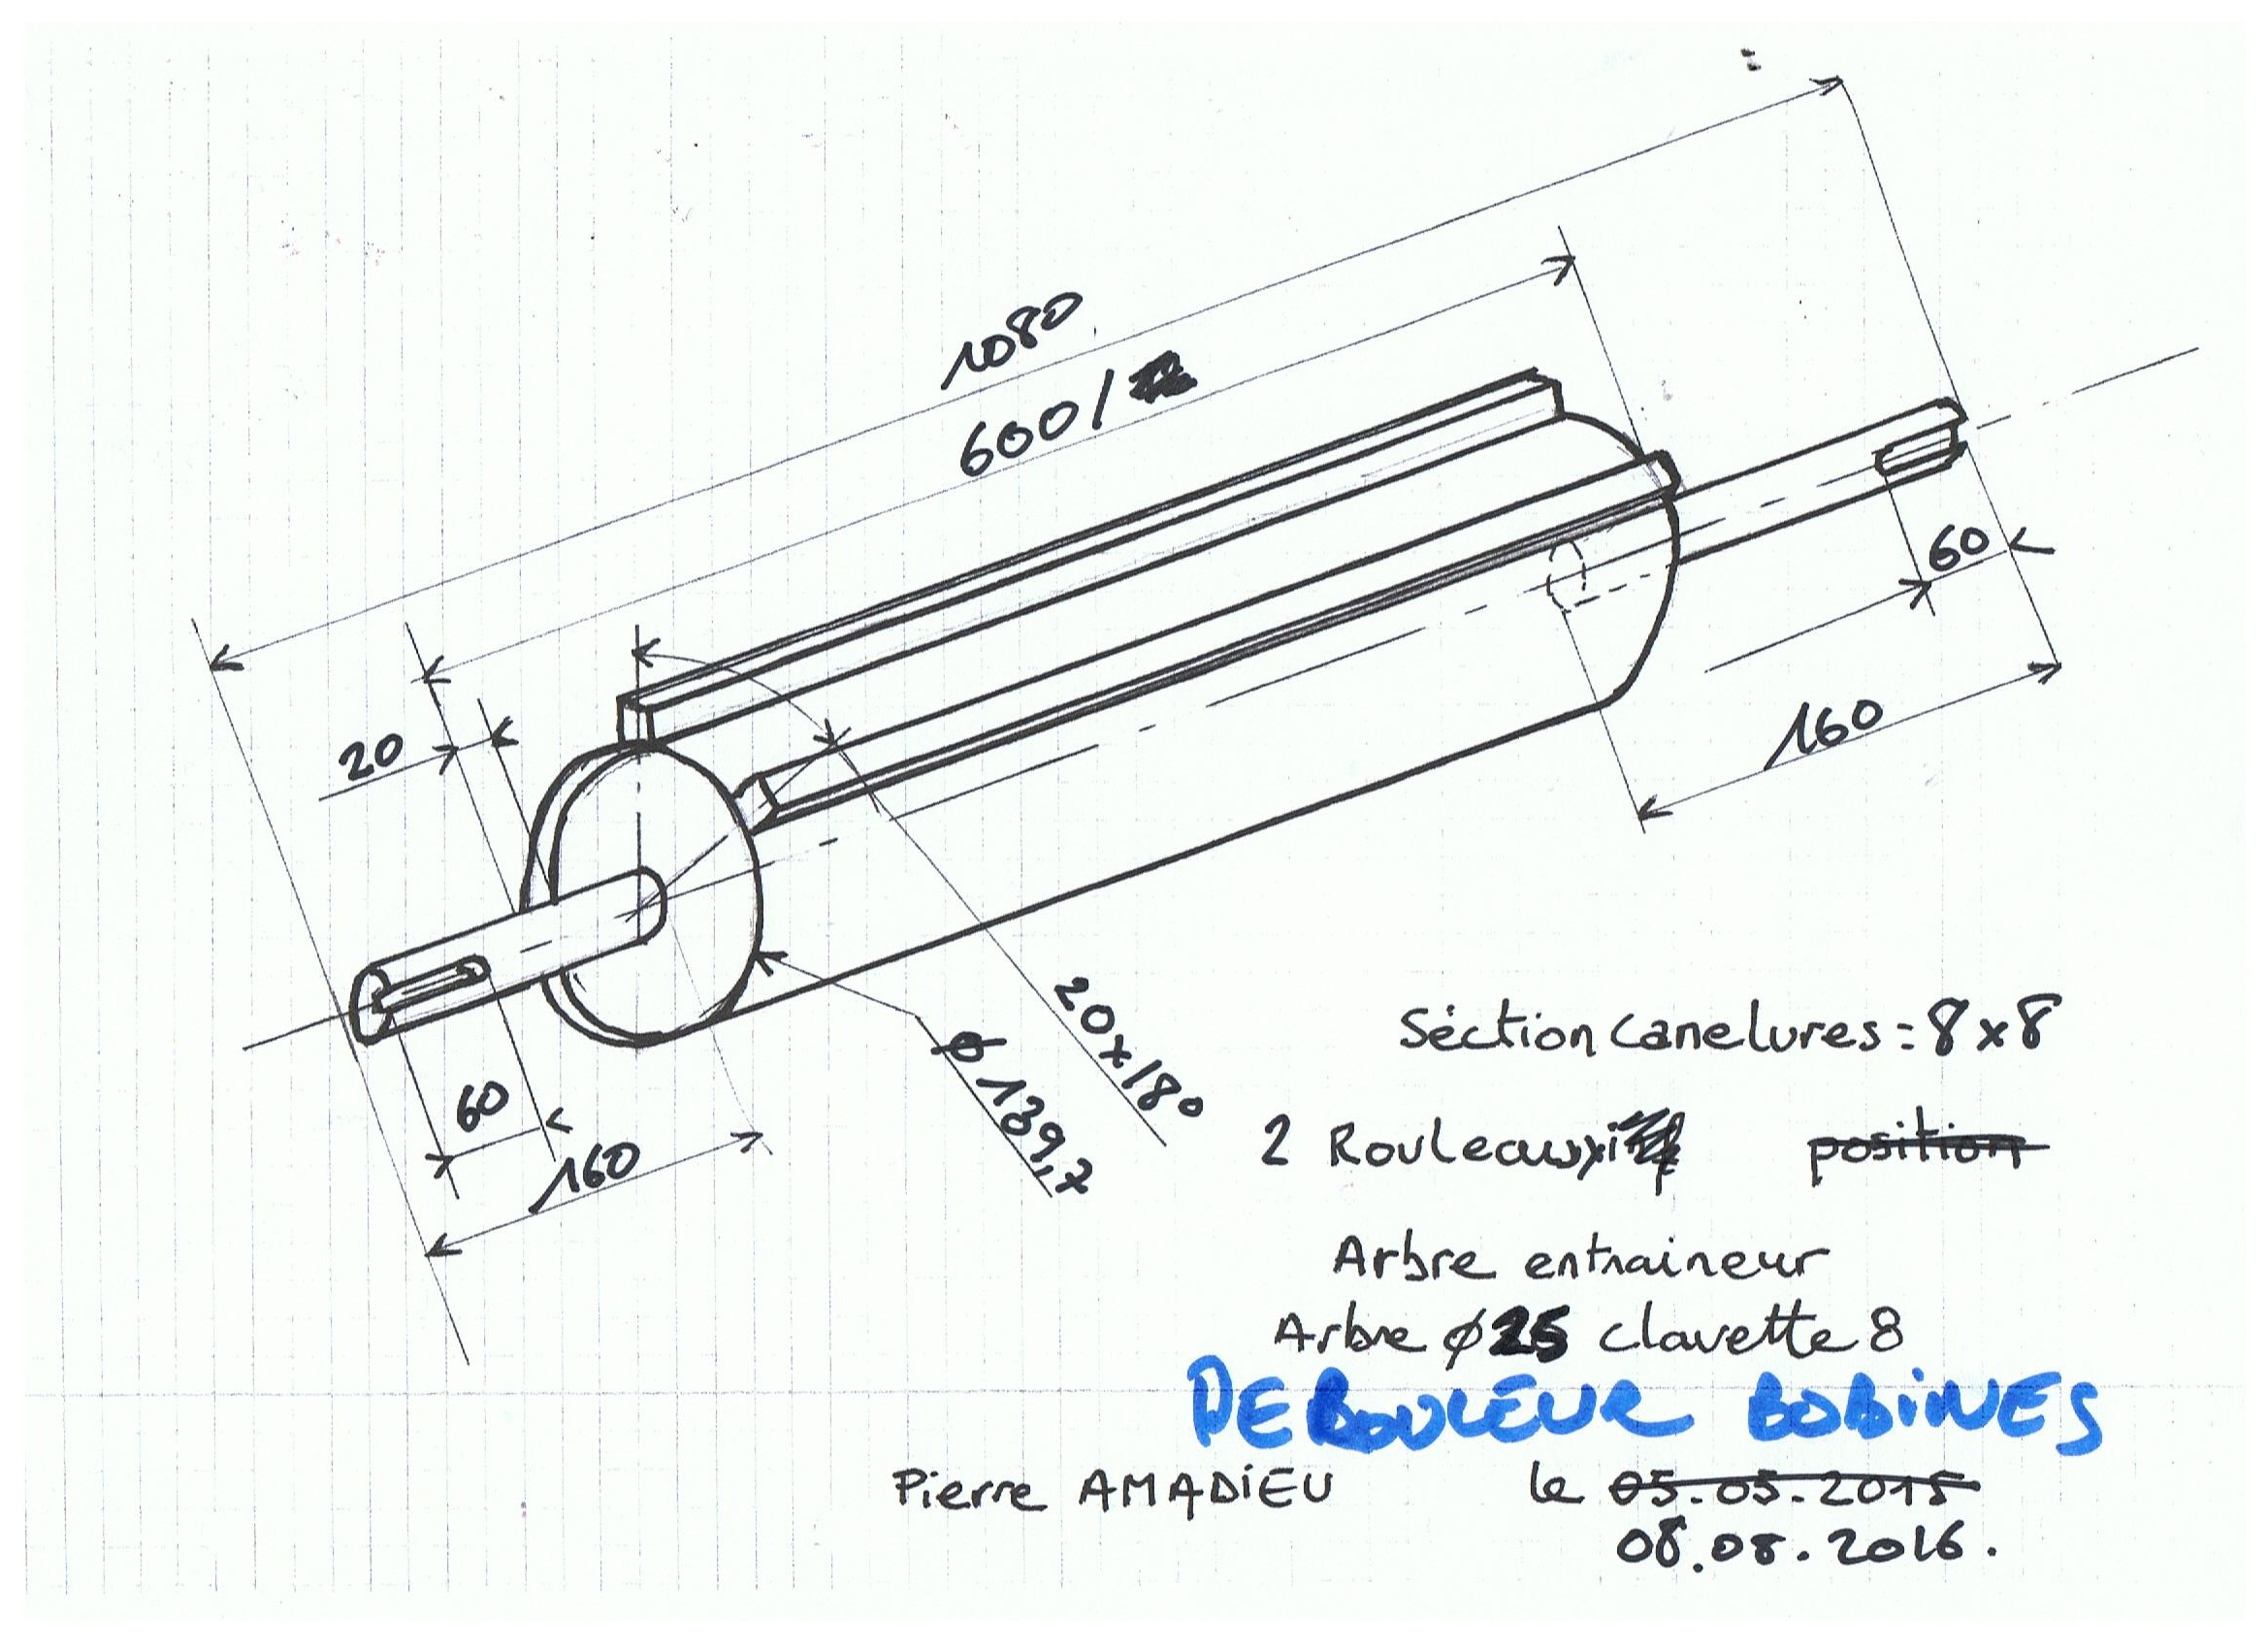 1080
600/
20
60
160
60
160
20x18°
ø 139,7
Séction canelures = 8x8
2 Rouleaux
position
Arbre entraineur
Arbre ø25 clavette 8
DEROULEUR BOBiNES
Pierre AMADiEU le 05.05.2015
08.08.2016.